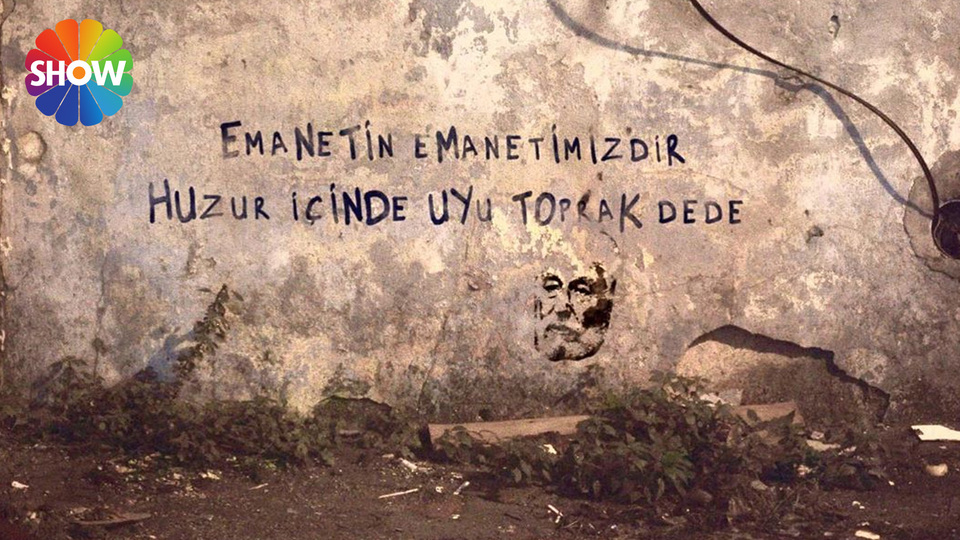 SHOW
EMANETİN EMANETİMİZDİR
HUZUR İÇİNDE UYU TOPRAK DEDE